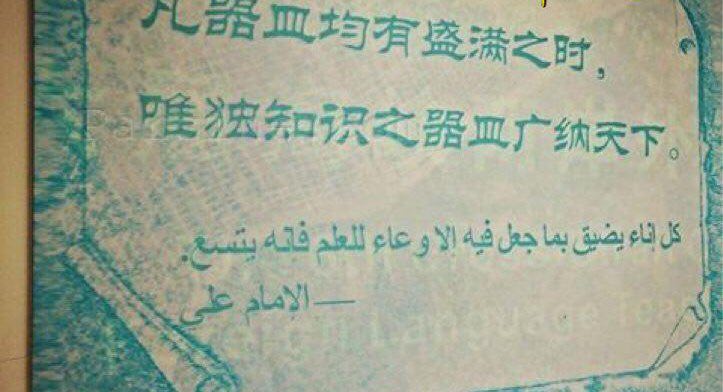 凡器皿均有盛满之时，
唯独知识之器皿广纳天下。
كل إناء يضيق بما جعل فيه إلا وعاء للعلم فانه يتسع.
—الإمام علي
Foreign Language Teac